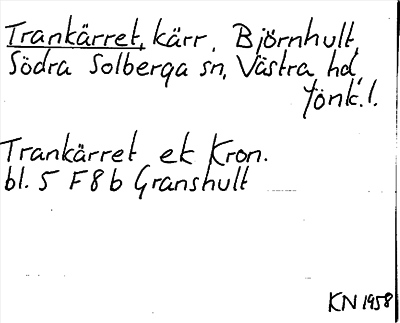 Trankärret, kärr, Björnhult,
Södra Solberga sn, Västra hd,
Jönk. l.
Trankärret ek Kron.
bl. 5 F 8 b Granshult
KN 1958